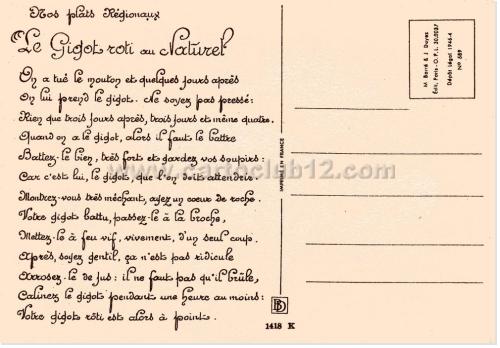 Nos plats Régionaux
Le Gigot roti au Naturel
On a tué le mouton et quelques jours après
On lui prend le gigot. Ne soyez pas pressé:
Rien que trois jours après, trois jours et même quatre.
Quand on a le gigot, alors il faut le battre
Battez-le bien, très fort et gardez vos soupirs:
Car c'est lui, le gigot, que l'on doit attendrir.
Montrez-vous très méchant, ayez un coeur de roche.
Votre gigot battu, passez-le à la broche,
Mettez-le à feu vif, vivement, d'un seul coup.
Après, soyez gentil, ça n'est pas ridicule
Arrosez-le de jus: il ne faut pas qu'il brûle,
Calinez le gigot pendant une heure au moins:
Votre gigot rôti est alors à point.
IMPRIMÉ EN FRANCE
BD
1418 K
M. Barré & J. Dayez
Édit. Paris - O.P.L. 30.0037
Dépôt Légal 1946-4
N° 589
www.cartoclub12.com